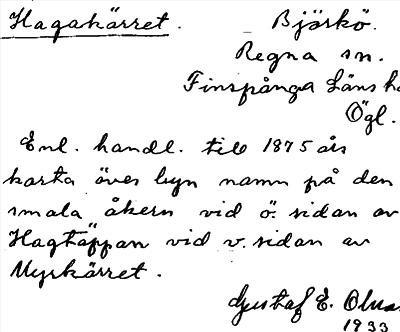 Hagakärret. Björkö.
Regna sn.
Finspånga läns h
Ögl.
Enl. handl. till 1875 års
karta över byn namn på den
smala åkern vid ö. sidan av
Hagtäppan vid v. sidan av
Myrkärret.
Gustaf E.
1933